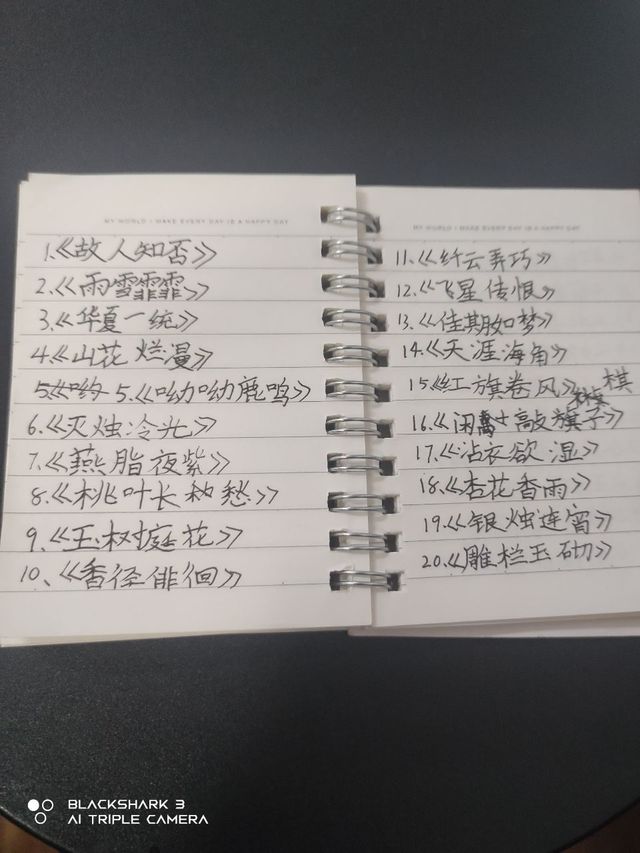 MY WORLD · MAKE EVERY DAY IS A HAPPY DAY
1.《故人知否》
2.《雨雪霏霏》
3.《华夏一统》
4.《山花烂漫》
5.《呦呦鹿鸣》
6.《灭烛冷光》
7.《燕脂夜紫》
8.《桃叶长秋愁》
9.《玉树庭花》
10、《香径徘徊》
MY WORLD · MAKE EVERY DAY IS A HAPPY DAY
11.《纤云弄巧》
12.《飞星传恨》
13.《佳期如梦》
14.《天涯海角》
15《红旗卷风》
棋
16.《闲敲旗子》
17.《沾衣欲湿》
18.《杏花香雨》
19.《银烛连宵》
20.《雕栏玉砌》
BLACKSHARK 3
AI TRIPLE CAMERA